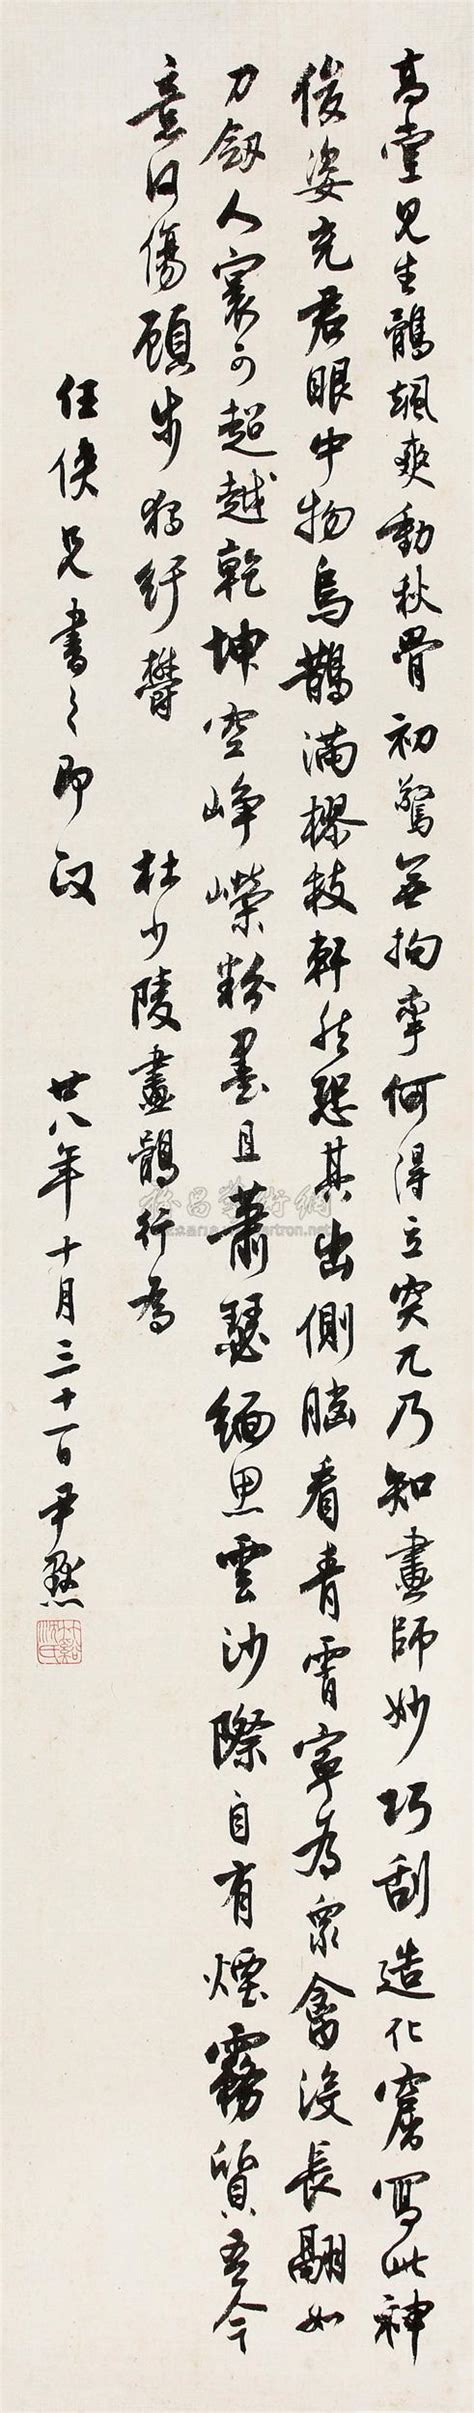 高堂見生鶻颯爽動秋骨初驚無拘牽何得立突兀乃知畫師妙巧刮造化窟寫此神
俊姿充君眼中物烏鵲滿樛枝軒然恐其出側腦看青霄寧為眾禽沒長翮如
刀劍人寰可超越乾坤空崢嶸粉墨且蕭瑟緬思雲沙際自有煙霧質吾今
意何傷顧步獨紆鬱 杜少陵畫鶻行為
任俠兄書之即政 廿八年十月三十一日尹默